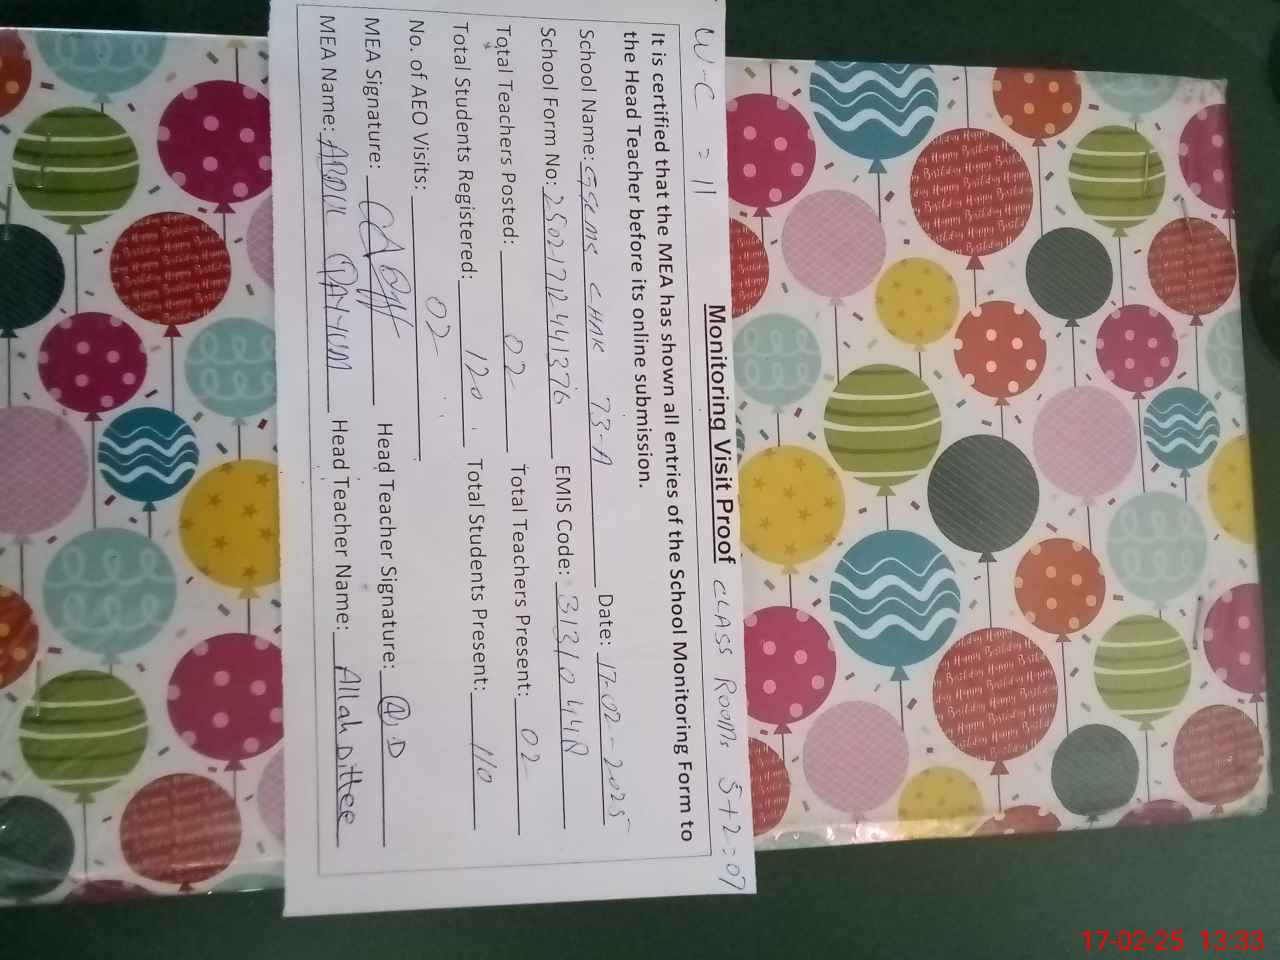 W-C = 11
Monitoring Visit Proof CLASS ROOMS 5+2=07
It is certified that the MEA has shown all entries of the School Monitoring Form to
the Head Teacher before its online submission.
School Name: CHAK 73-A Date: 17-02-2025
School Form No: 25021712441376 EMIS Code:
Total Teachers Posted: 02 Total Teachers Present: 02
Total Students Registered: 120 Total Students Present: 110
No. of AEO Visits: 02
MEA Signature: Head Teacher Signature: A.D
MEA Name: ABDUL QAYYUM Head Teacher Name: Allah Dittee
Happy Birthday
17-02-25 13:33